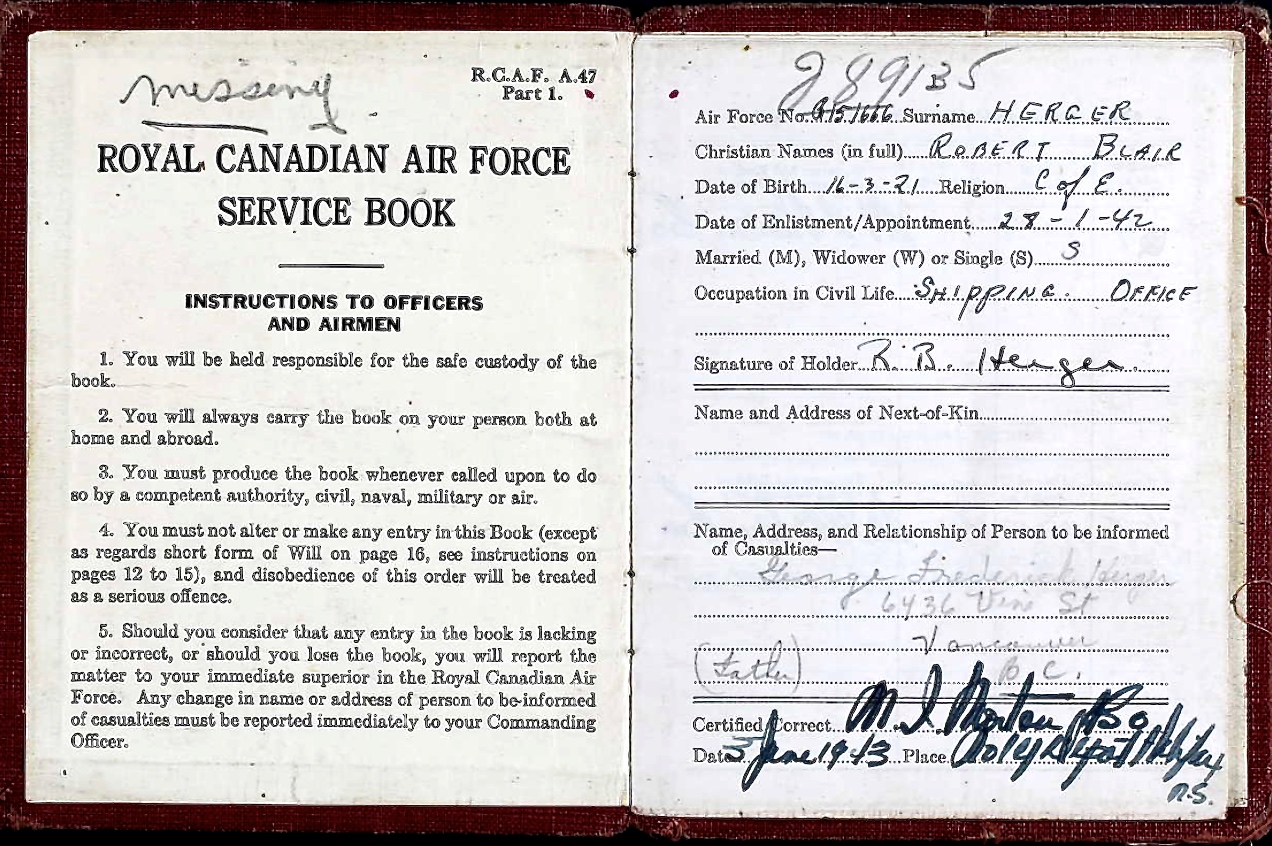 missing
R.C.A.F. A.47
Part 1.
ROYAL CANADIAN AIR FORCE
SERVICE BOOK
INSTRUCTIONS TO OFFICERS
AND AIRMEN
1. You will be held responsible for the safe custody of the
book.
2. You will always carry the book on your person both at
home and abroad.
3. You must produce the book whenever called upon to do
so by a competent authority, civil, naval, military or air.
4. You must not alter or make any entry in this Book (except
as regards short form of Will on page 16, see instructions on
pages 12 to 15), and disobedience of this order will be treated
as a serious offence.
5. Should you consider that any entry in the book is lacking
or incorrect, or should you lose the book, you will report the
matter to your immediate superior in the Royal Canadian Air
Force. Any change in name or address of person to be informed
of casualties must be reported immediately to your Commanding
Officer.
Air Force No. Surname HERGER
Christian Names (in full) ROBERT BLAIR
Date of Birth 16-3-21 Religion C of E.
Date of Enlistment/Appointment 28-1-42
Married (M), Widower (W) or Single (S) S
Occupation in Civil Life SHIPPING OFFICE
Signature of Holder R. B. Herger
Name and Address of Next-of-Kin
Name, Address, and Relationship of Person to be informed
of Casualties—
George Frederick Herger
6436 Vine St
Vancouver
(Father) B.C.
Certified Correct
Date 5 June 1943 Place Depot Halifax
N.S.